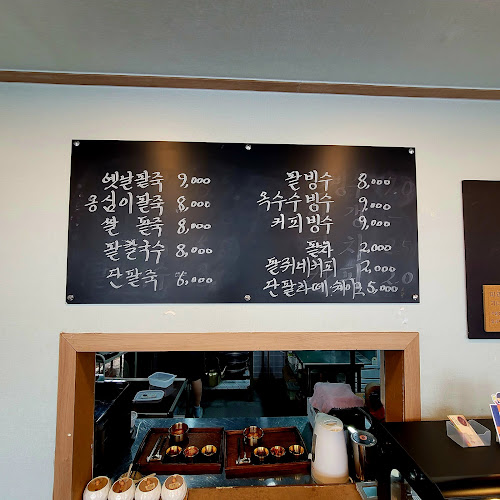 옛날팥죽 9,000
옹심이팥죽 8,000
쌀 팥죽 8,000
팥칼국수 8,000
단팥죽 6,000
팥빙수 8,000
옥수수빙수 9,000
커피빙수 9,000
팥차 2,000
팥쥐네커피 2,000
단팥라떼 5,000